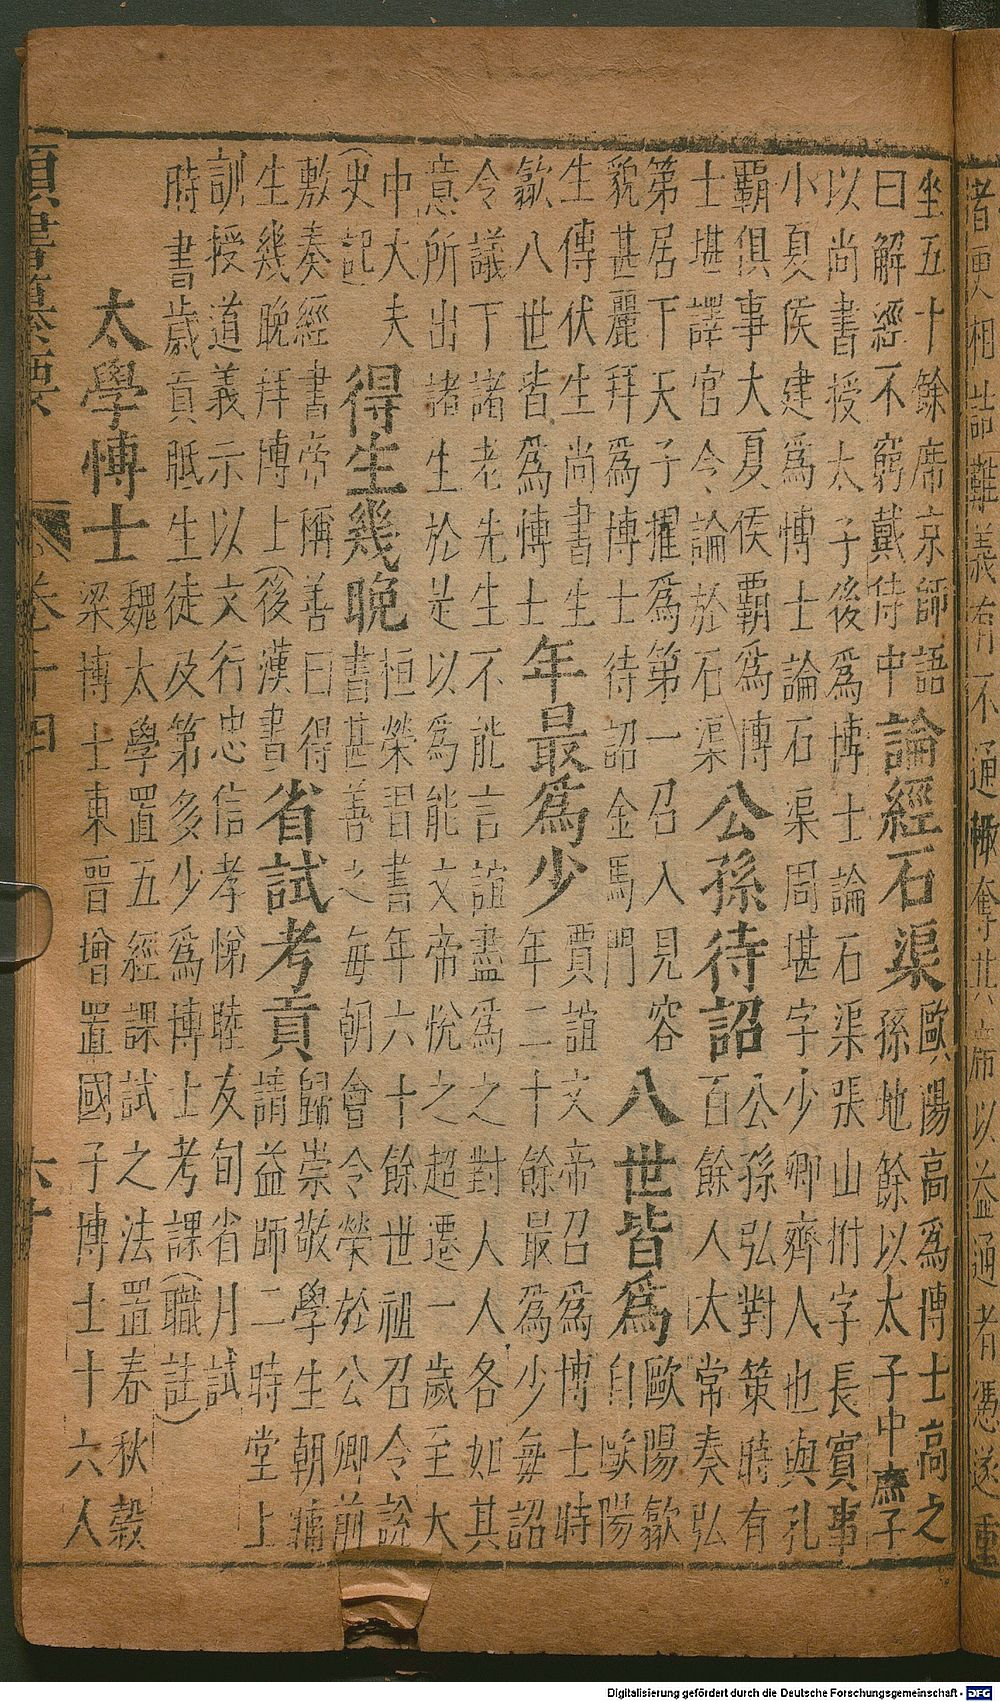 者更相詰難義有不通輒奪其席以益通者憑遂重
坐五十餘席京師語
曰解經不窮戴侍中
論經石渠
歐陽高為博士高之
孫地餘以太子中庶子
以尚書授太子後為博士論石渠張山拊字長賓事
小夏侯建為博士論石渠周堪字少卿齊人也與孔
霸俱事大夏侯霸為博
士堪譯官令論於石渠
公孫待詔
公孫弘對策時有
百餘人太常奏弘
第居下天子擢為第一召入見容
貌甚麗拜為博士待詔金馬門
八世皆爲
歐陽歙
自歐陽
生傳伏生尚書生
歙八世皆為博士
年最爲少
賈誼文帝召為博士時
年二十餘最為少每詔
令議下諸老先生不能言誼盡為之對人人各如其
意所出諸生於是以為能文帝悅之超遷一歲至大
中大夫
(史記)
得生幾晚
桓榮習書年六十餘世祖召令說
書甚善之每朝會令榮於公卿前
敷奏經書帝稱善曰得
生幾晚拜博士(後漢書)
省試考貢
歸崇敬學生朝晡
請益師二時堂上
訓授道義示以文行忠信孝悌睦友旬省月試
時書歲貢胝生徒及第多少為博士考課(職註)
太學博士
魏太學置五經課試之法置春秋穀
梁博士東晉增置國子博士十六人
類書纂要 卷十四 六十
Digitalisierung gefördert durch die Deutsche Forschungsgemeinschaft - DFG